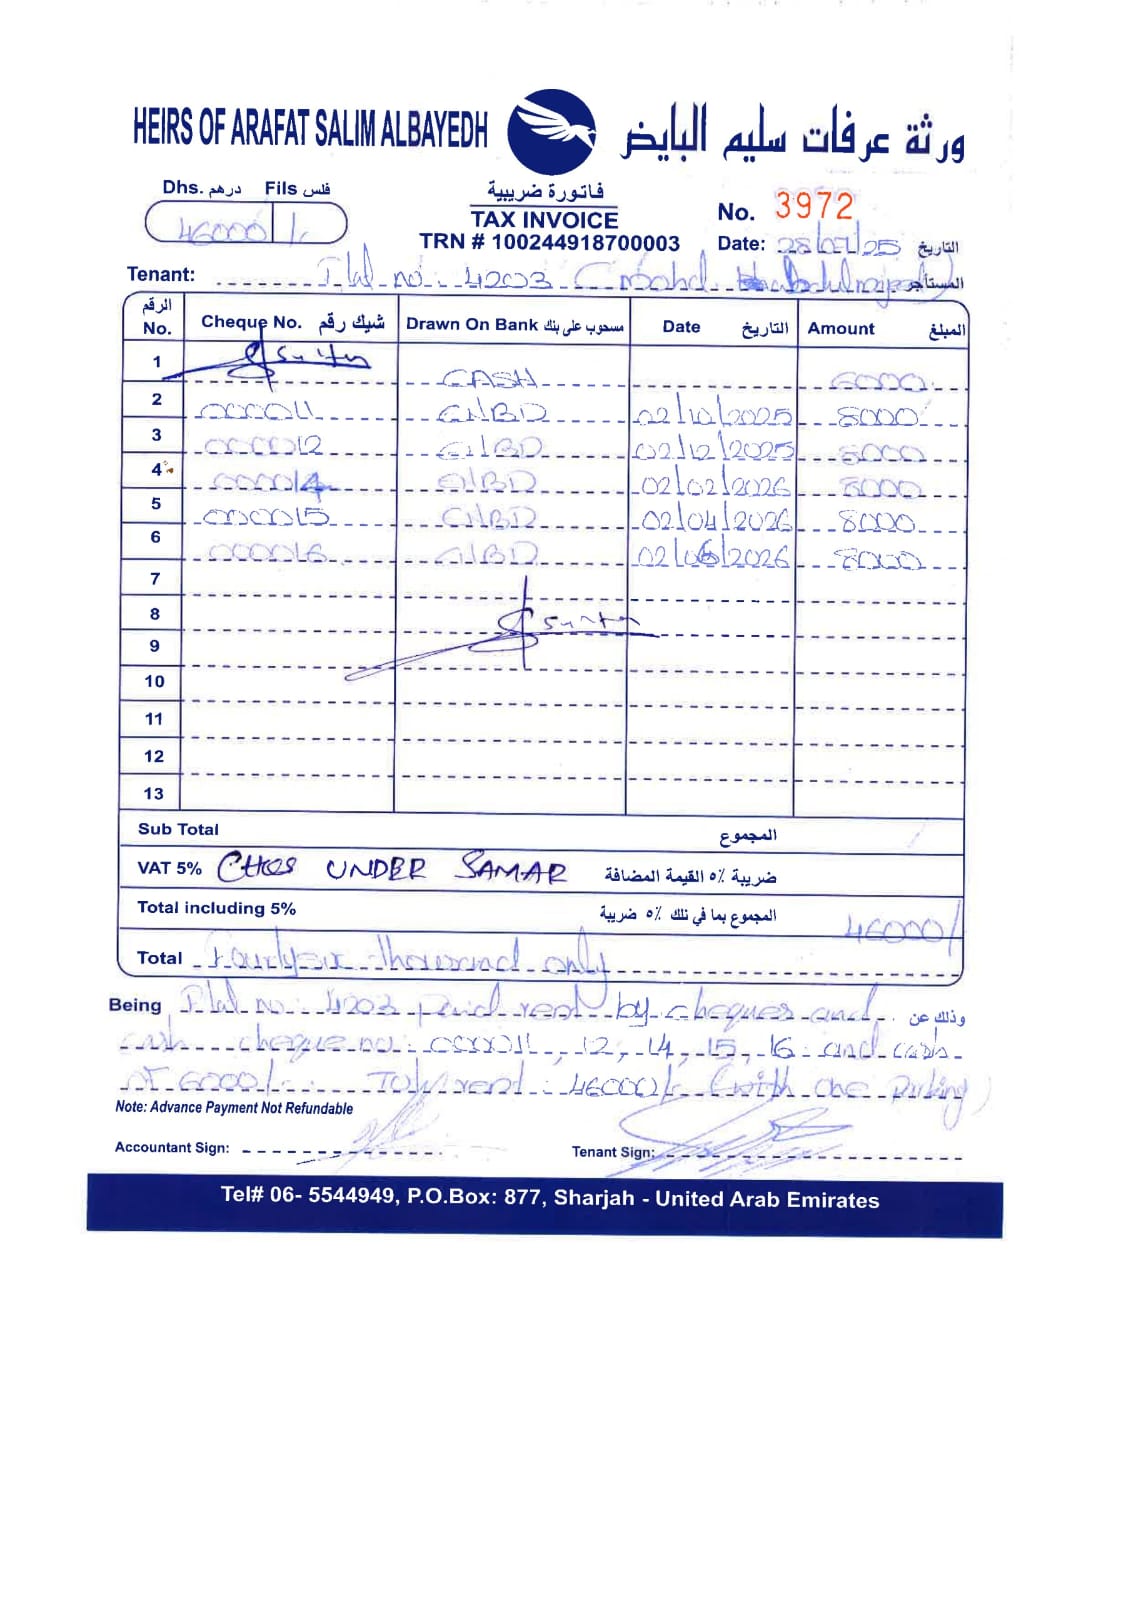 HEIRS OF ARAFAT SALIM ALBAYEDH ورثة عرفات سليم البايض
Dhs. درهم Fils فلس
46000/.
فاتورة ضريبية
TAX INVOICE
TRN # 100244918700003
No. 3972
Date: 28/07/25 التاريخ
Tenant: Flat no: 4203 المستأجر
الرقم No. Cheque No. شيك رقم Drawn On Bank مسحوب على بنك Date التاريخ Amount المبلغ
1 CASH 6000
2 000011 02/10/2025 8000
3 000012 02/12/2025 8000
4 000014 02/02/2026 8000
5 000015 02/04/2026 8000
6 000016 02/06/2026 8000
7
8
9
10
11
12
13
Sub Total المجموع
VAT 5% CHQS UNDER SAMAR ضريبة ٥٪ القيمة المضافة
Total including 5% المجموع بما في ذلك ٥٪ ضريبة 46000/
Total Fourtysix thousand only
Being Flat no: 4203 paid rent by cheques and وذلك عن
cash cheque no: 000011, 12, 14, 15, 16 and cash
of 6000/. Total rent: 46000/. (with one parking)
Note: Advance Payment Not Refundable
Accountant Sign: Tenant Sign:
Tel# 06- 5544949, P.O.Box: 877, Sharjah - United Arab Emirates